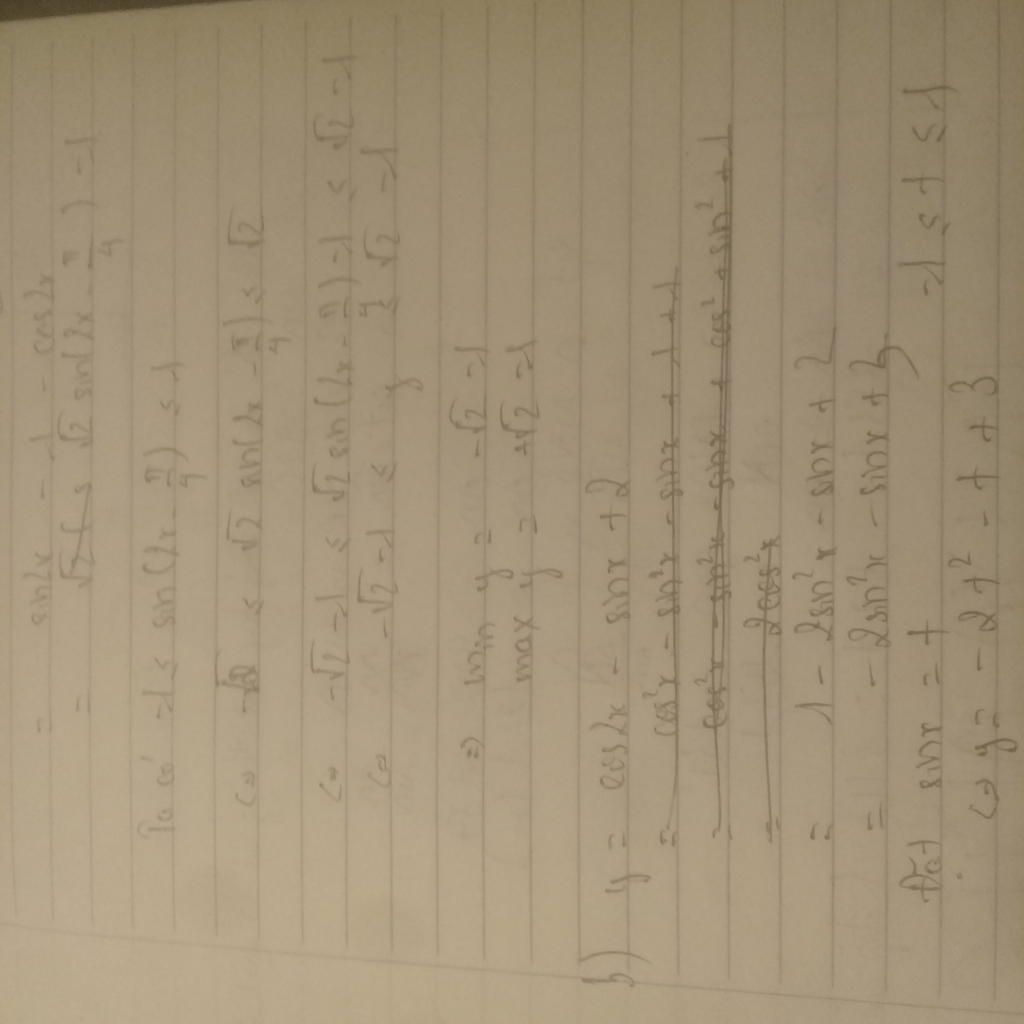 = sin2x - 1 - cos2x
= √2 sin(2x - π/4) - 1
Ta có -1 ≤ sin(2x - π/4) ≤ 1
<=> -√2 ≤ √2 sin(2x - π/4) ≤ √2
<=> -√2 - 1 ≤ √2 sin(2x - π/4) - 1 ≤ √2 - 1
<=> -√2 - 1 ≤ y ≤ √2 - 1
=> min y = -√2 - 1
max y = +√2 - 1
b) y = cos2x - sinx + 2
= cos²x - sin²x - sinx + 1 + 1
= cos²x - sin²x - sinx + cos² + sin² + 1
= 2cos²x
= 1 - 2sin²x - sinx + 2
= - 2sin²x - sinx + 3
Đặt sinx = t, -1 ≤ t ≤ 1
<=> y = - 2t² - t + 3